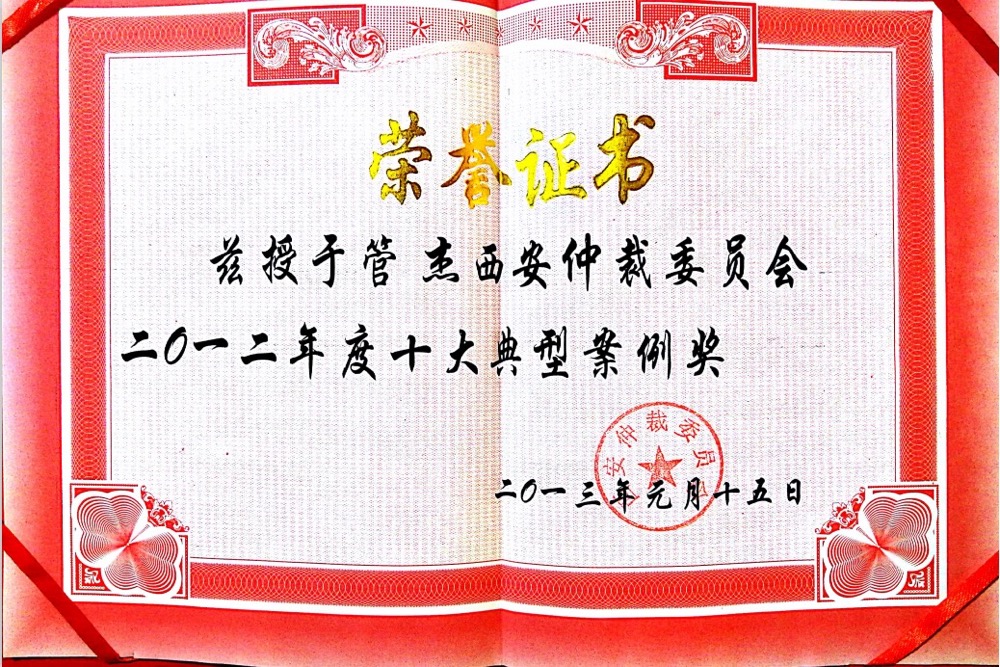 荣誉证书
兹授于管 杰西安仲裁委员会
二〇一二年度十大典型案例奖
安仲裁委员
二〇一三年元月十五日